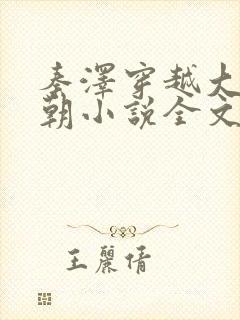 秦澤穿越大
朝小説全文
王麗倩